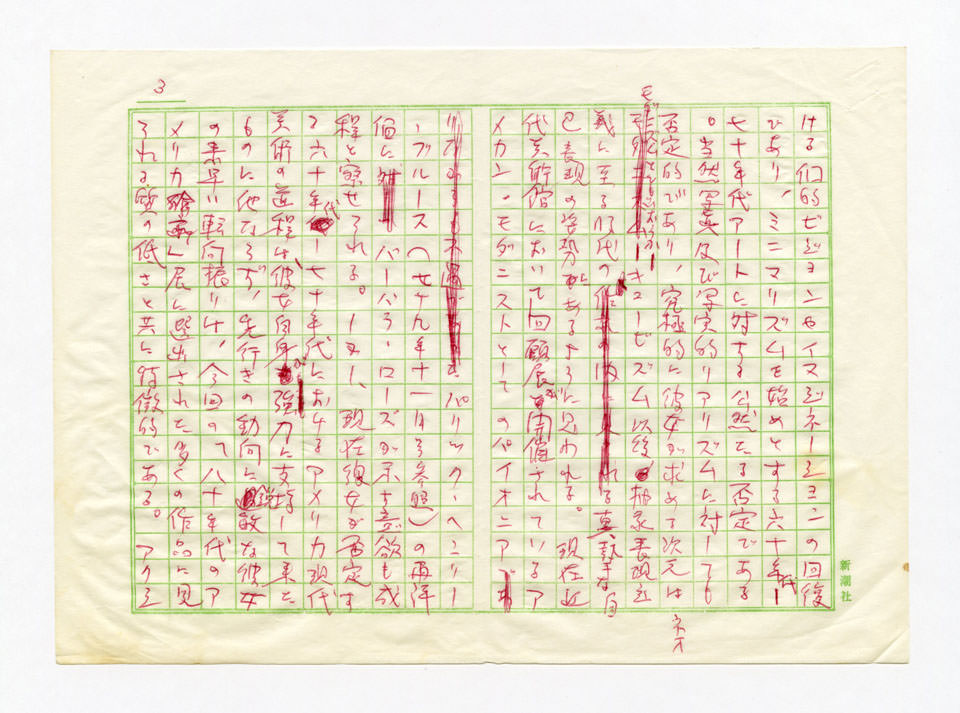 3
ける幻的ビジョンやイマジネーションの回復
であり、ミニマリズムを始めとする六十年代ー
七十年代アートに対する公然たる否定である
。当然写真及び写実的リアリズムに対しても
否定的であり、究極的に彼女が求めて次元は
ネオ
キュービズム以後抽象表現主
義に至る時代の真摯な自
己表現の姿勢にあるように思われる。現在近
代美術館において回顧展が開催されているア
メカン・モダニストとしてのパイオニア
パリック・ヘンリー
・ブルース(七十九年十一月号参照)の再評
価にバーバラ・ローズが示す意欲も成
程と察せられる。しかし、現在彼女が否定す
る六十年代ー七十年代におけるアメリカ現代
美術の道程は、彼女自身が強力に支持して来た
ものに他ならず、先行きの動向に鋭敏な彼女
の素早い転向振りは、今回の八十年代のア
メリカ絵画展に選出された多くの作品に見
られる質の低さと共に特徴的である。アクシ
新潮社